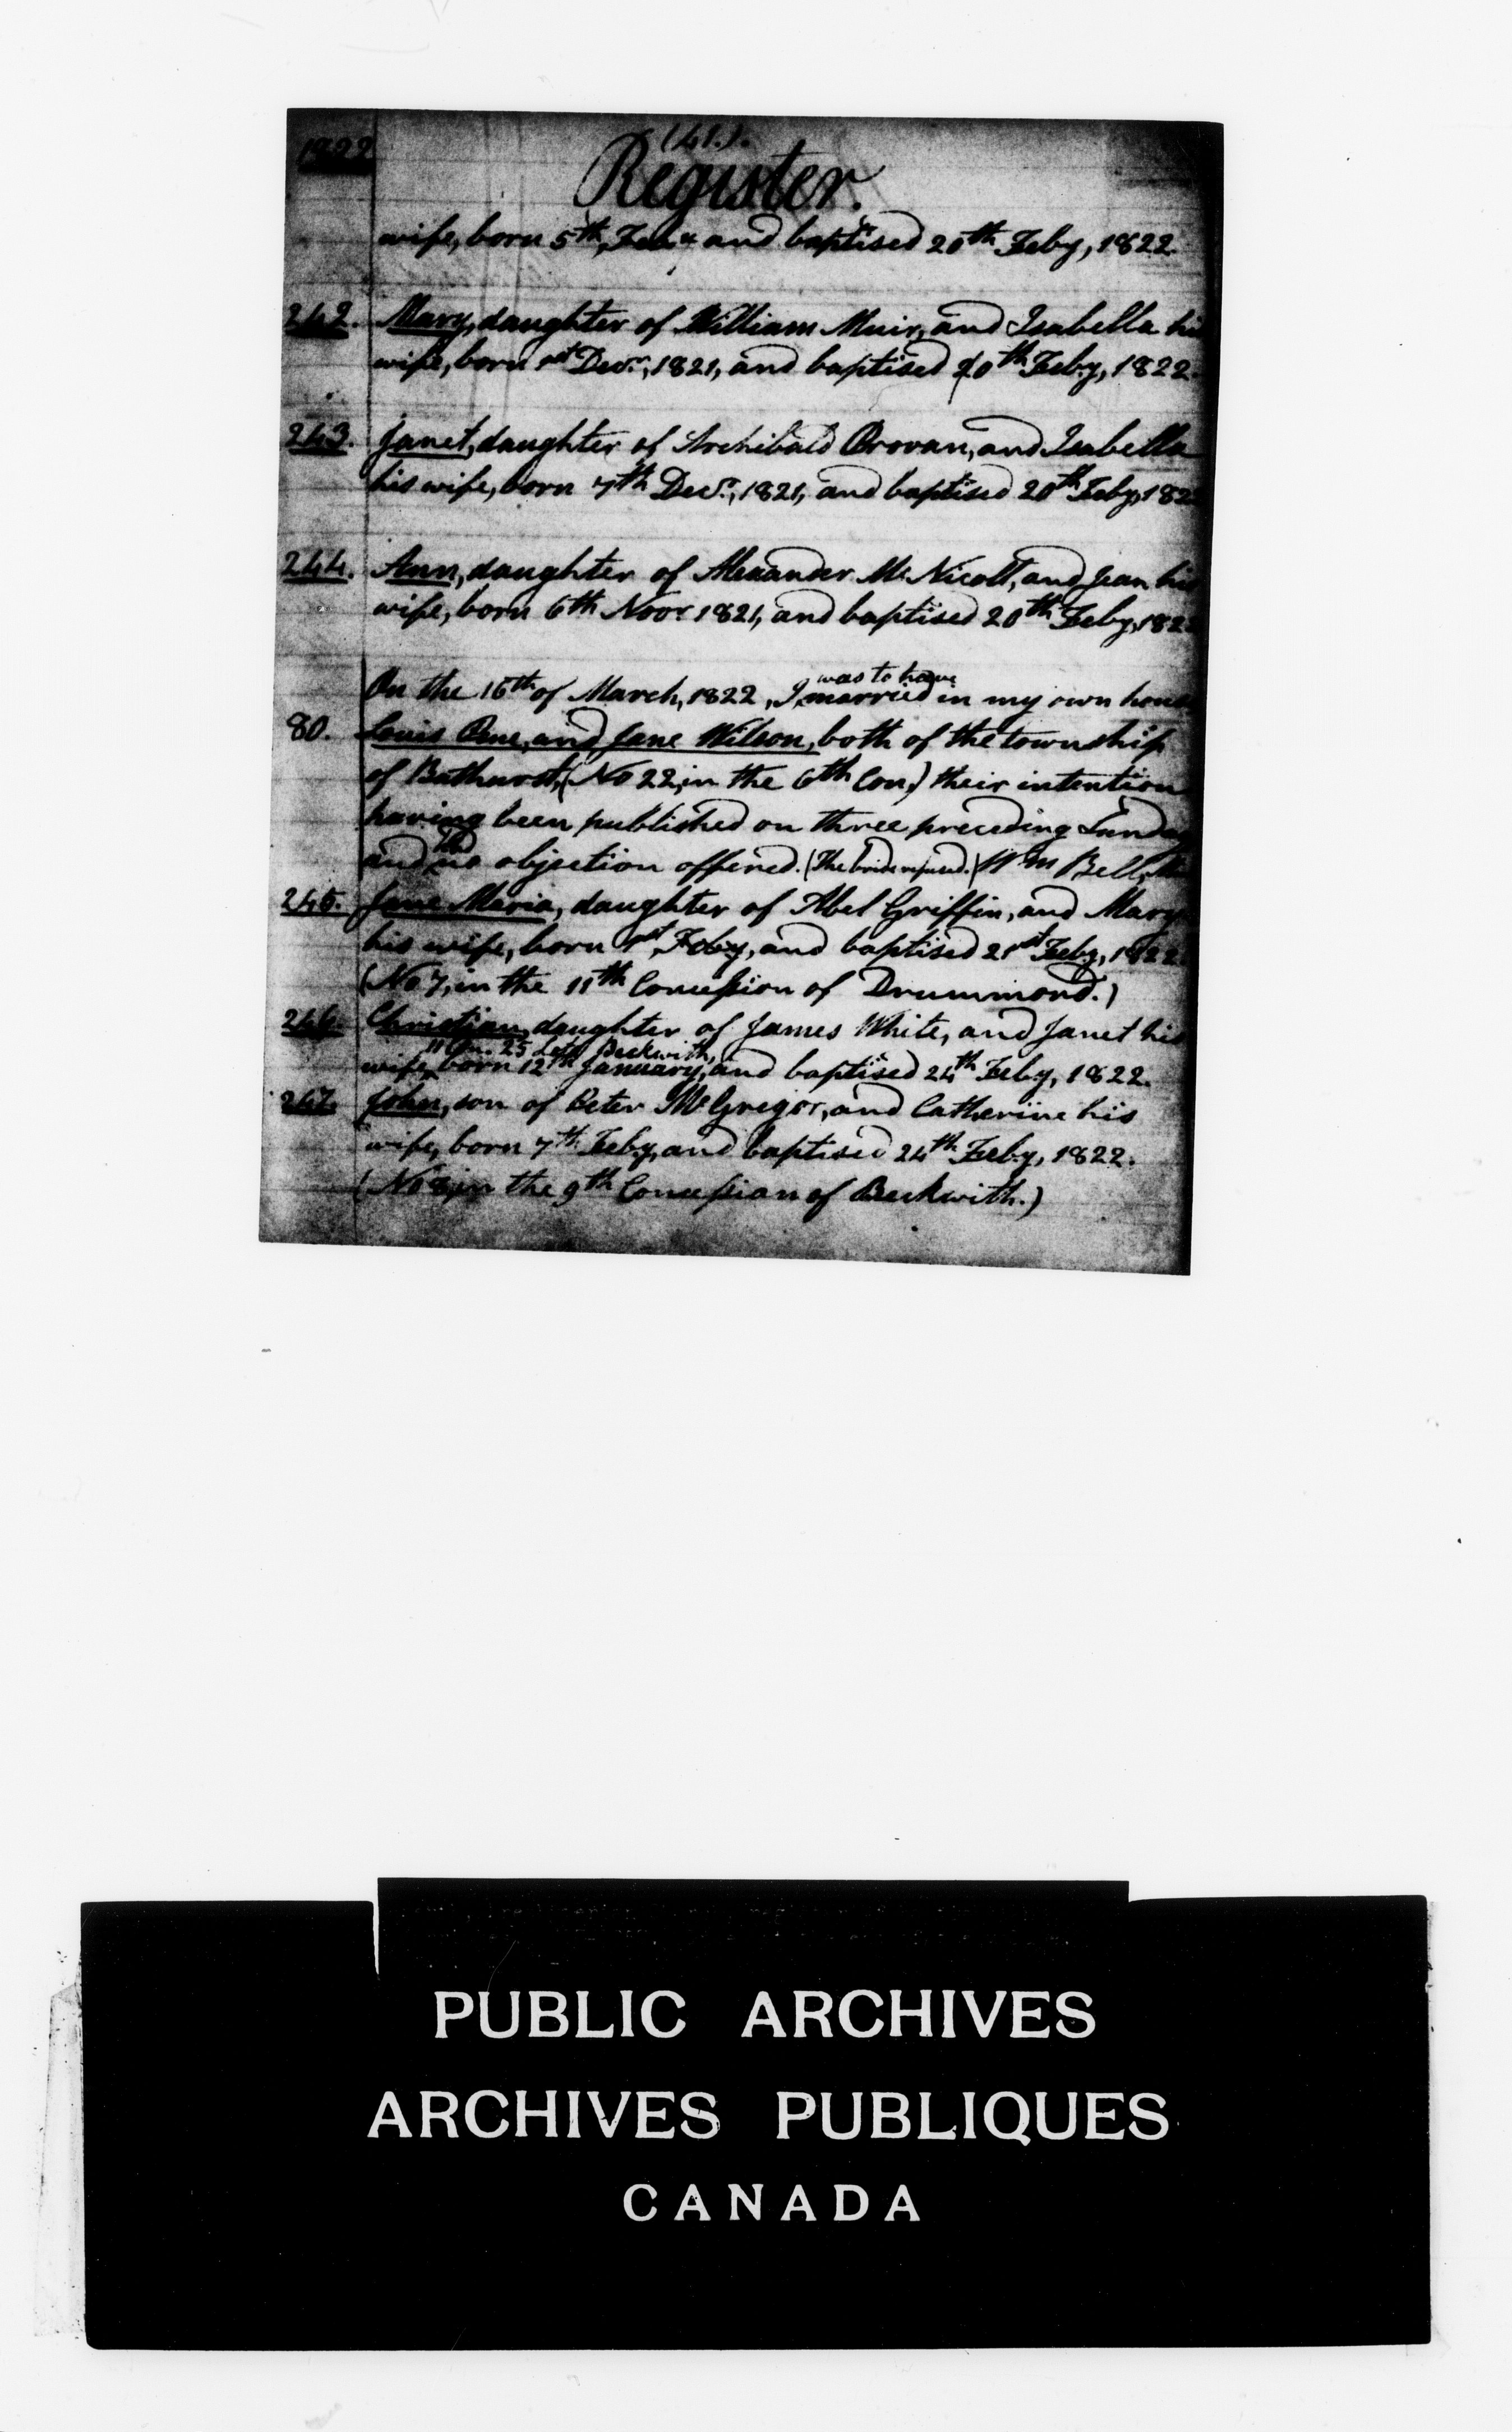 1822
(41.).
Register.
wife, born 5th, and baptised 20th Feby, 1822.
242. Mary, daughter of William Muir, and Isabella his
wife, born 1st Decr., 1821, and baptised 20th Feby, 1822.
243. Janet, daughter of Archibald Provan, and Isabella
his wife, born 7th Decr., 1821, and baptised 20th Feby, 182
244. Ann, daughter of Alexander McNicoll, and Jean his
wife, born 6th Novr 1821, and baptised 20th Feby, 182
was to have
On the 16th of March, 1822, I married in my own house
80. Louis and Jane Wilson, both of the township
of Bathurst, (No 22, in the 6th Con.) their intention
having been published on three preceding Sunday
and no objection offered. (The bride refused.) Wm Bell, Mi
245. Jane Maria, daughter of Abel Griffin, and Mary
his wife, born 1st Feby, and baptised 21st Feby, 1822.
(No 7, in the 11th Concession of Drummond.)
246. Christian, daughter of James White, and Janet his
11 Con. 25 Lot Beckwith,
wife, born 12th January, and baptised 24th Feby, 1822.
247. John, son of Peter McGregor, and Catherine his
wife, born 7th Feby, and baptised 24th Feby, 1822.
(No in the 9th Concession of Beckwith.)
PUBLIC ARCHIVES
ARCHIVES PUBLIQUES
CANADA